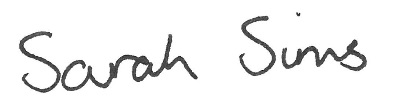 Sarah Sims